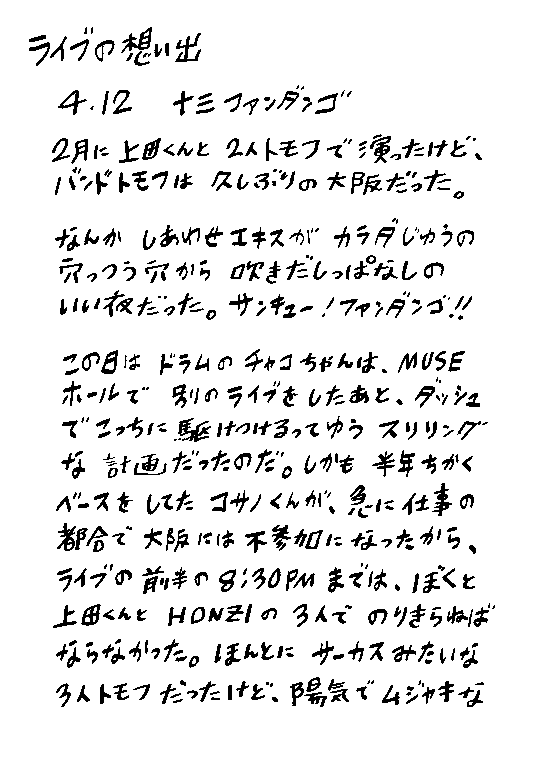 ライブの想い出
4.12 十三ファンダンゴ
2月に上田くんと2人トモフで演ったけど、
バンドトモフは久しぶりの大阪だった。
なんかしあわせエキスがカラダじゅうの
穴っつう穴から吹きだしっぱなしの
いい夜だった。サンキュー!ファンダンゴ!!
この日はドラムのチャコちゃんは、MUSE
ホールで別のライブをしたあと、ダッシュ
でこっちに駆けつけるってゆうスリリング
な計画だったのだ。しかも半年ちかく
ベースをしてたコサノくんが、急に仕事の
都合で大阪には不参加になったから、
ライブの前半の8:30PMまでは、ぼくと
上田くんとHONZIの3人でのりきらねば
ならなかった。ほんとにサーカスみたいな
3人トモフだったけど、陽気でムジャキな